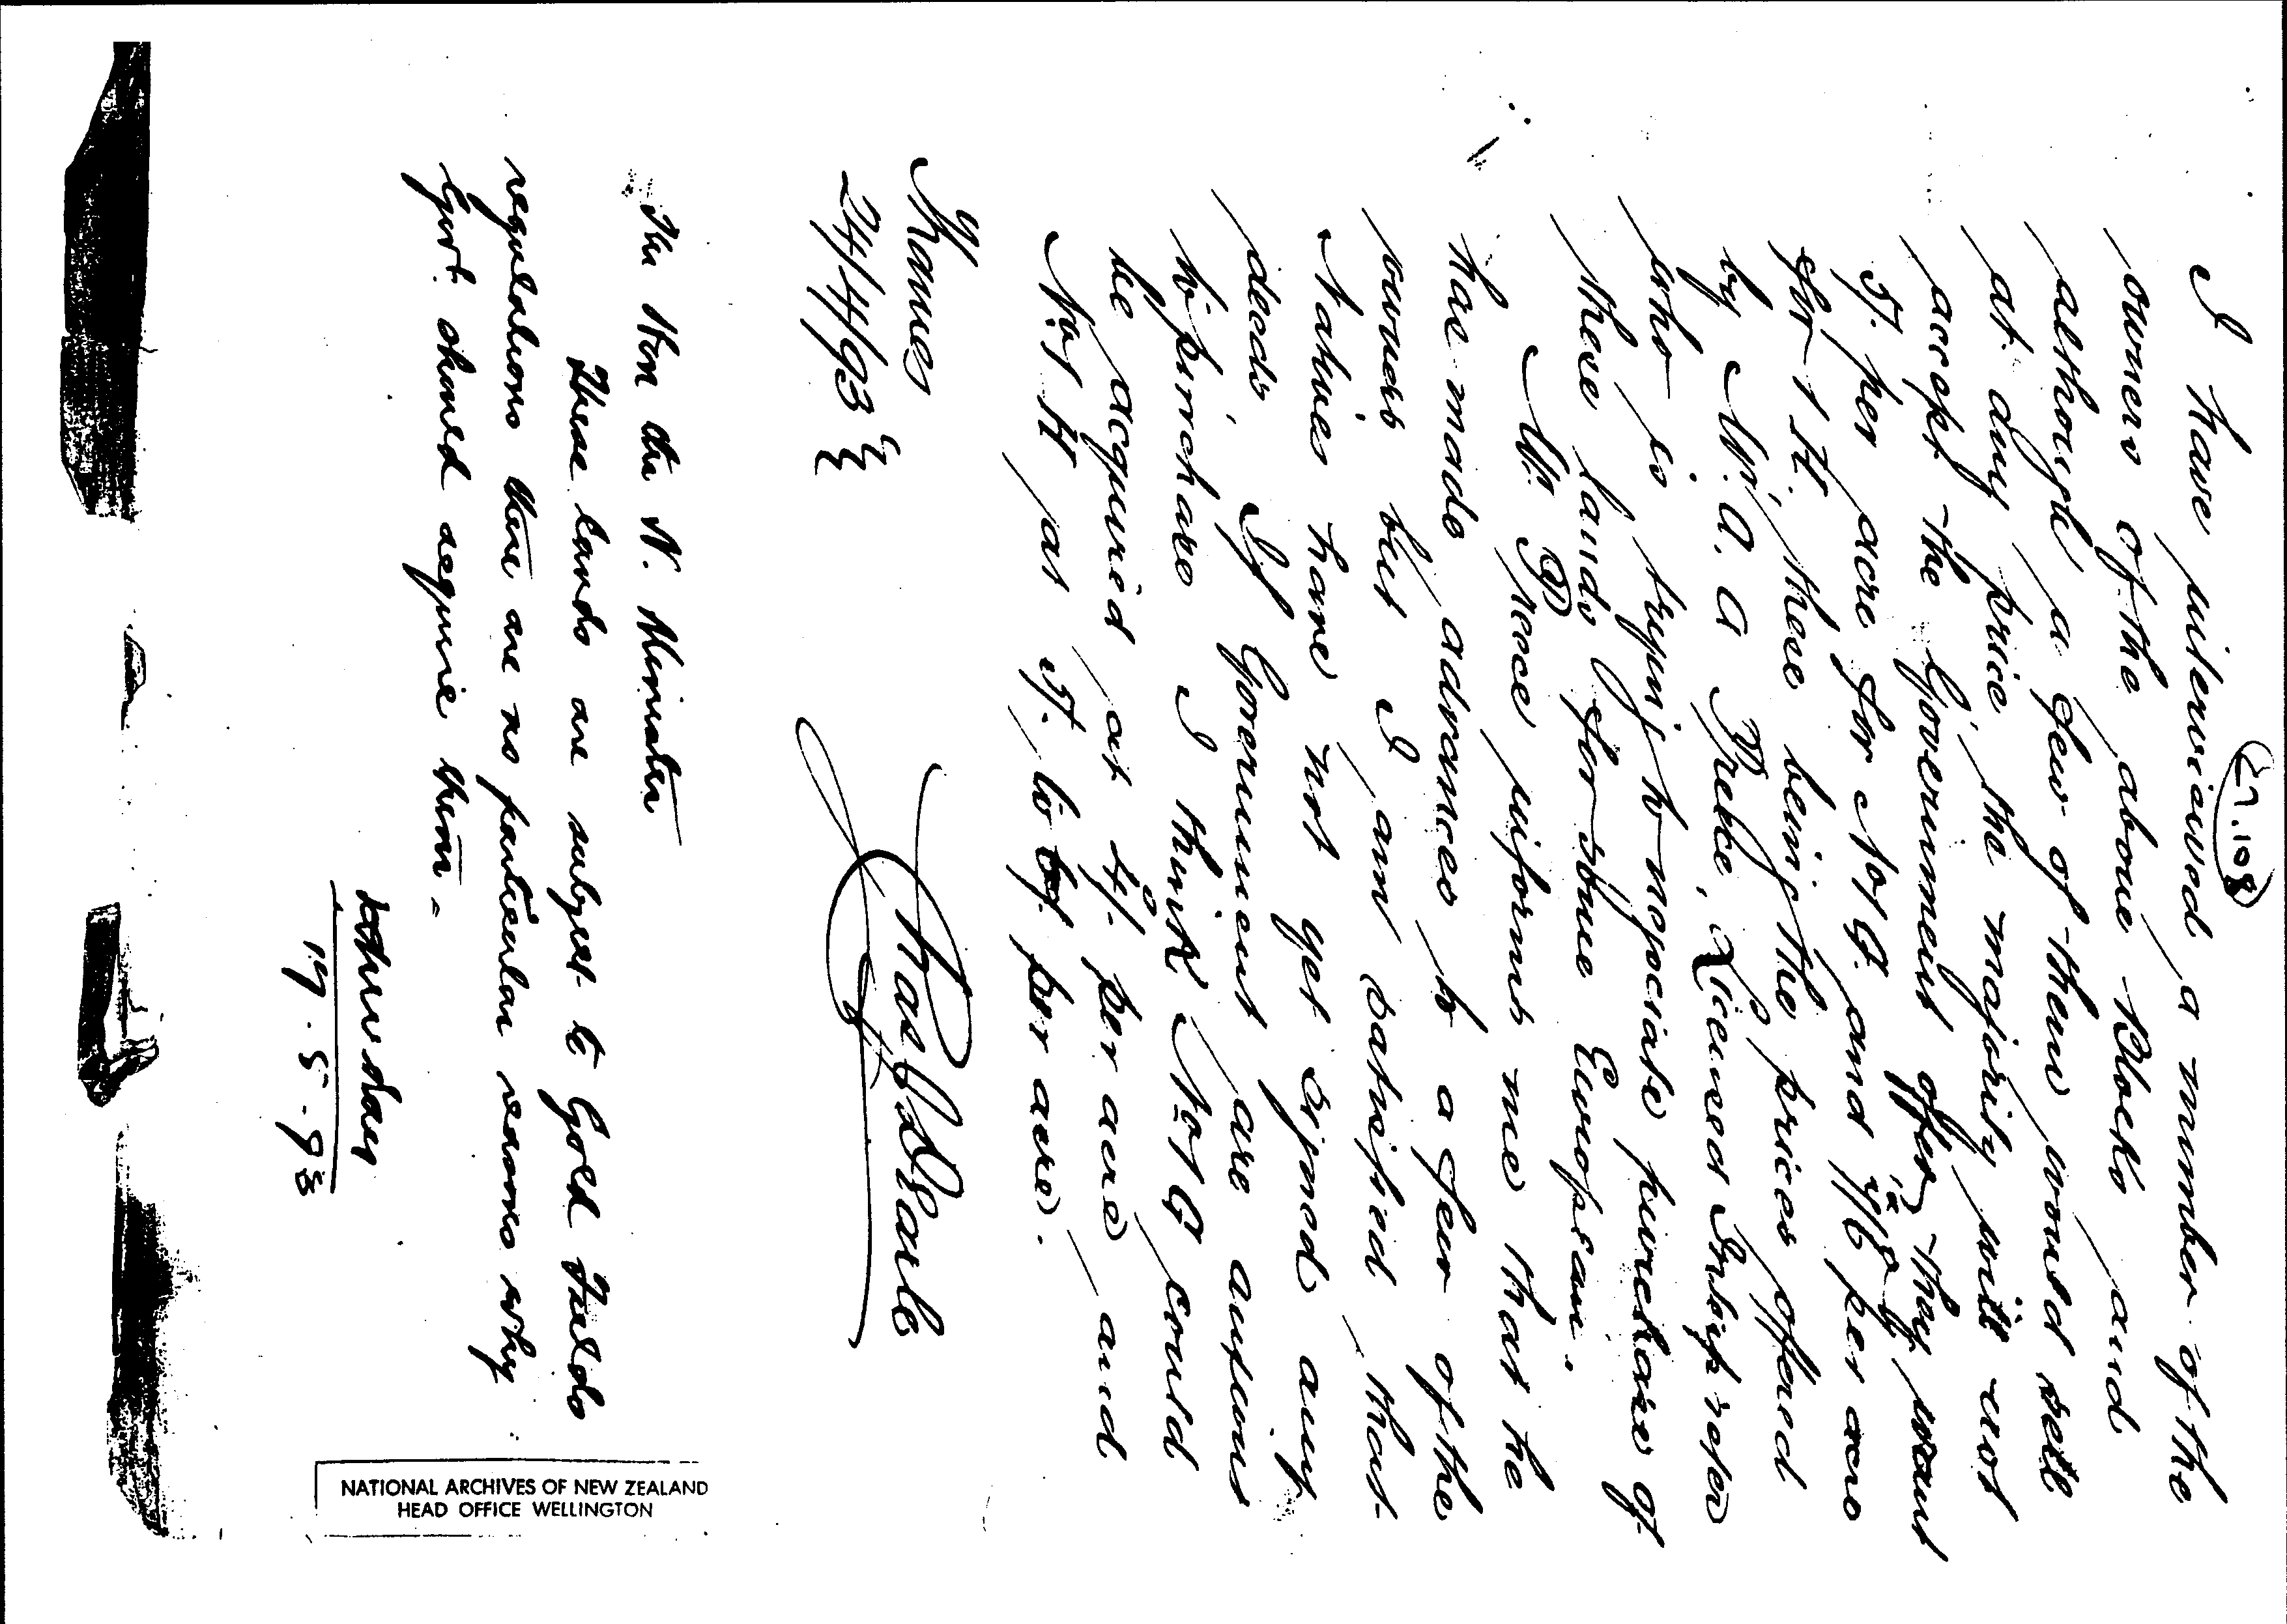 27.108
I have interviewed a number of the
owners of the above Blocks and
although a few of them would sell
at any price the majority will not
accept the Government offer, they want
5/. per acre for No 1 G. and 7/6 per acre
for 1 H. these being the prices offered
by Mr. A. A Preece, Licensed Interpreter
who is trying to negociate purchase of
these lands for some European.
Mr Preece informs me that he
has made advances to a few of the
owners but I am satisfied that
Natives have not yet signed any
deeds If Government are anxious
to purchase I think No 1 G could
be acquired at 4/. per acre and
No 1 H at 5/. to 6/. per acre.
Thames
24/4/93
The Hon the N. Minister
These lands are subject to Gold Fields
regulations there are no particular reasons why
Govt. should acquire them.
17.5.93
NATIONAL ARCHIVES OF NEW ZEALAND
HEAD OFFICE WELLINGTON